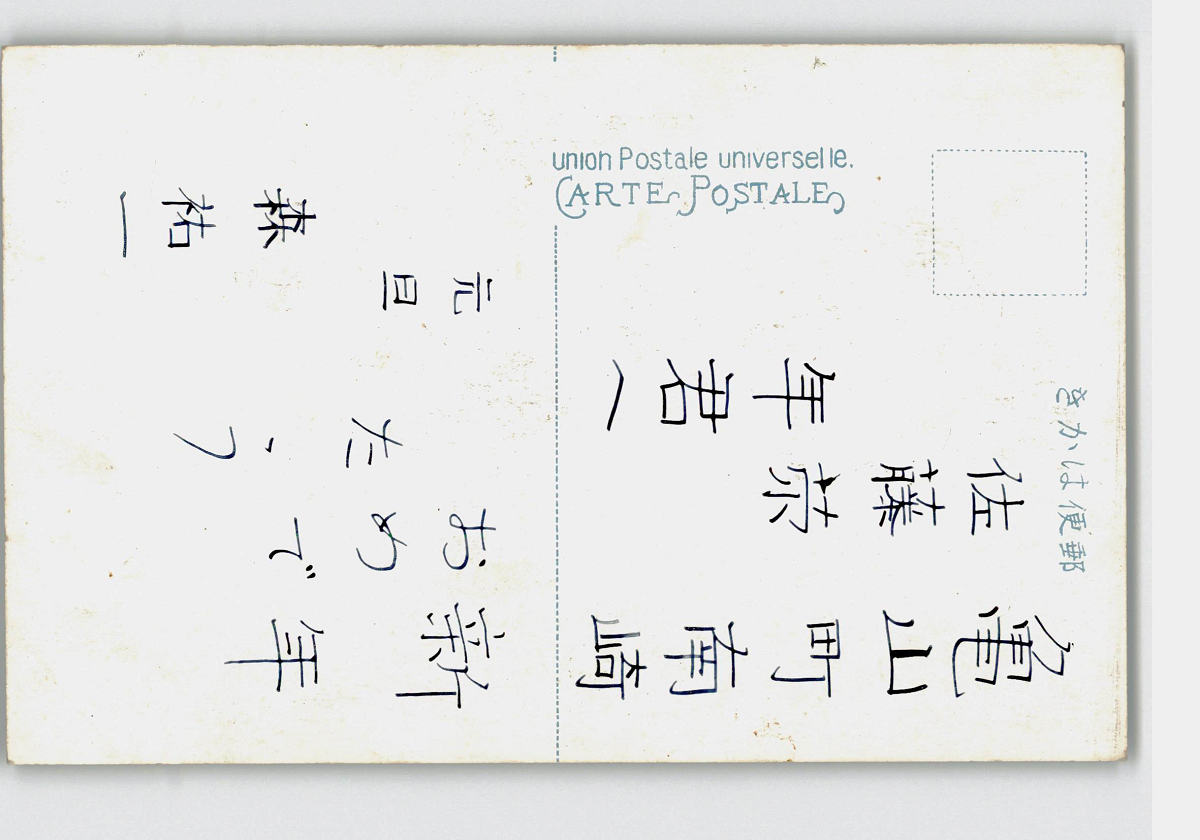 きかは便郵
union Postale universelle.
CARTE POSTALE
亀山町南崎
佐藤
年君へ
新年
おめで
たう
元旦
森祐一